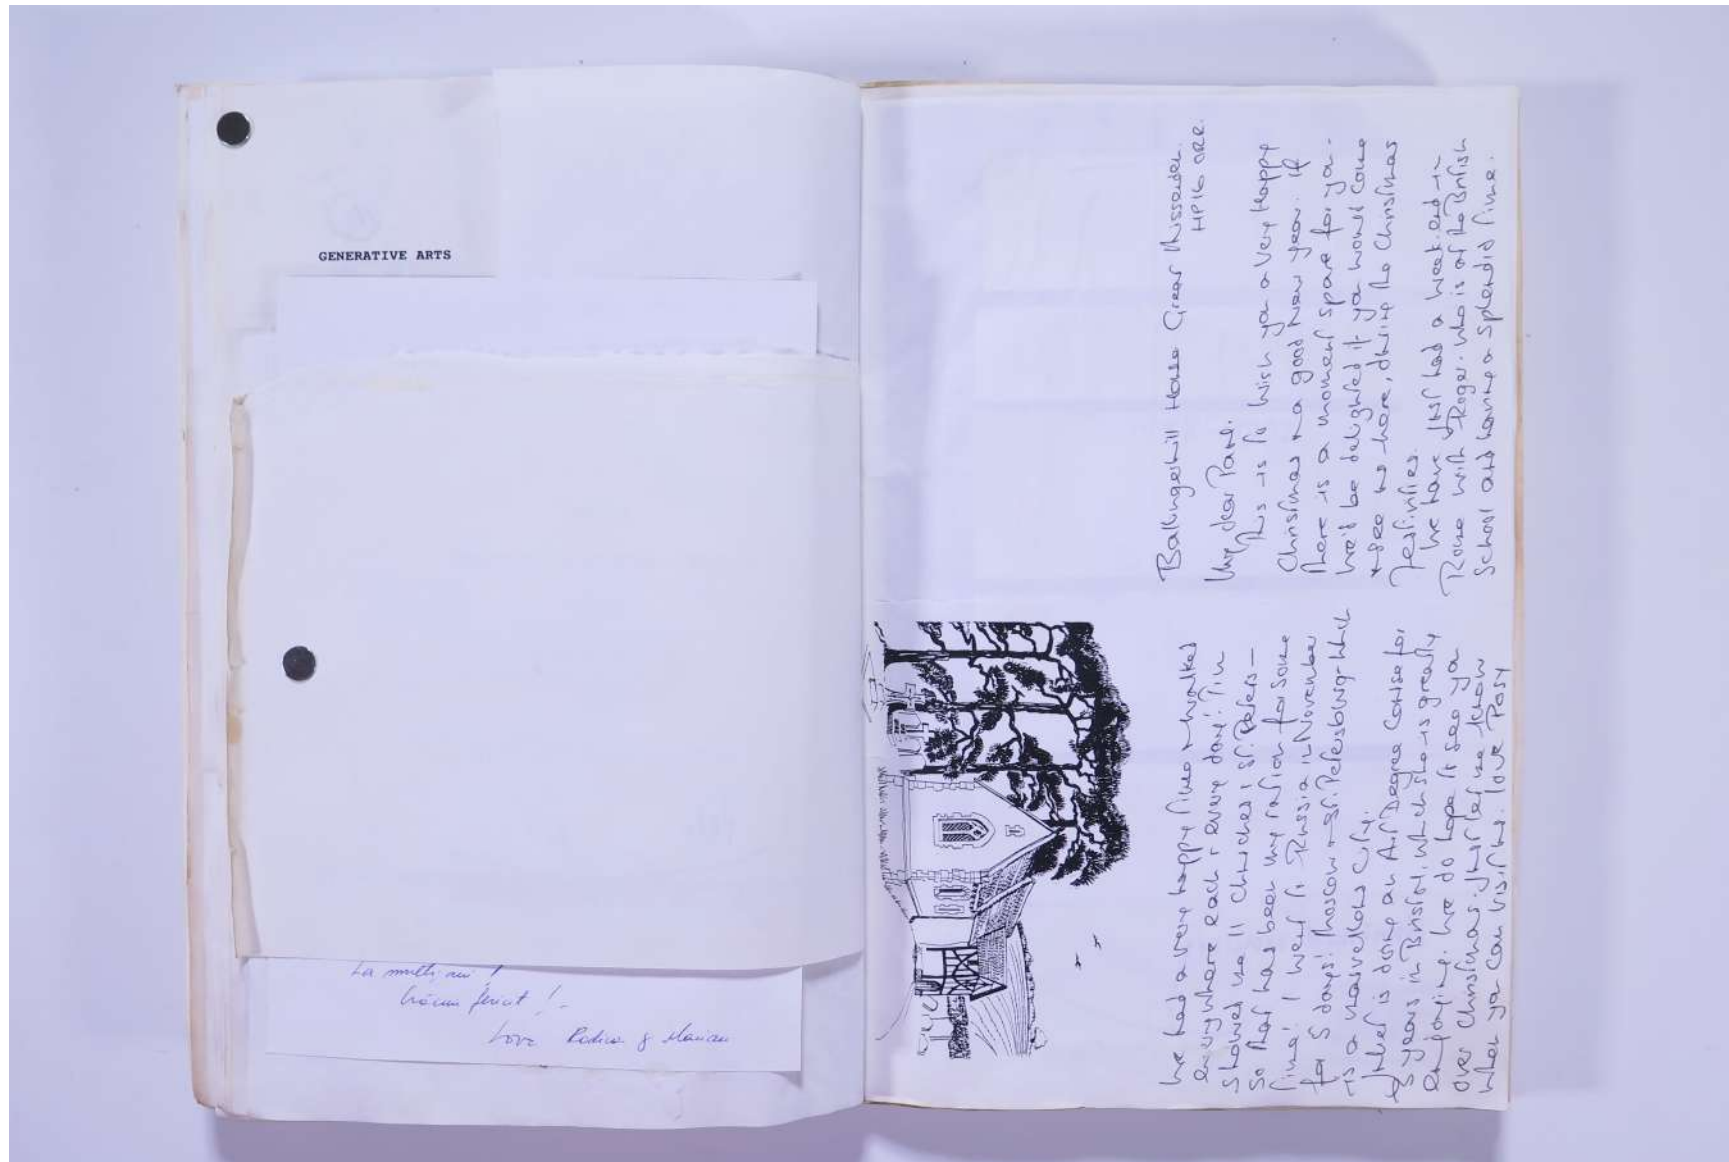 GENERATIVE ARTS
La mulți ani!
Crăciun fericit! -
Love Rodica & Marian
Ballingerhill House Great Missenden.
HP16
My dear Paul.
This is to wish you a very Happy
Christmas & a good new year. If
there is a moment spare for you -
we'd be delighted if you would come
& see us here, during the Christmas
Festivities.
We have just had a week-end in
Rome with Roger who is at the British
School and having a splendid time.
We had a very happy time & walked
everywhere each & every day! Tim
showed us 11 churches & St. Peters -
So that has been my ration for some
time! I went to Russia in November
for 5 days! Moscow & St. Petersburg - which
is a marvellous city.
is doing an Art Degree Course for
years in Bristol, which she is greatly
enjoying. We do hope to see you
over Christmas. Just let me know
when you can visit us. love Posy